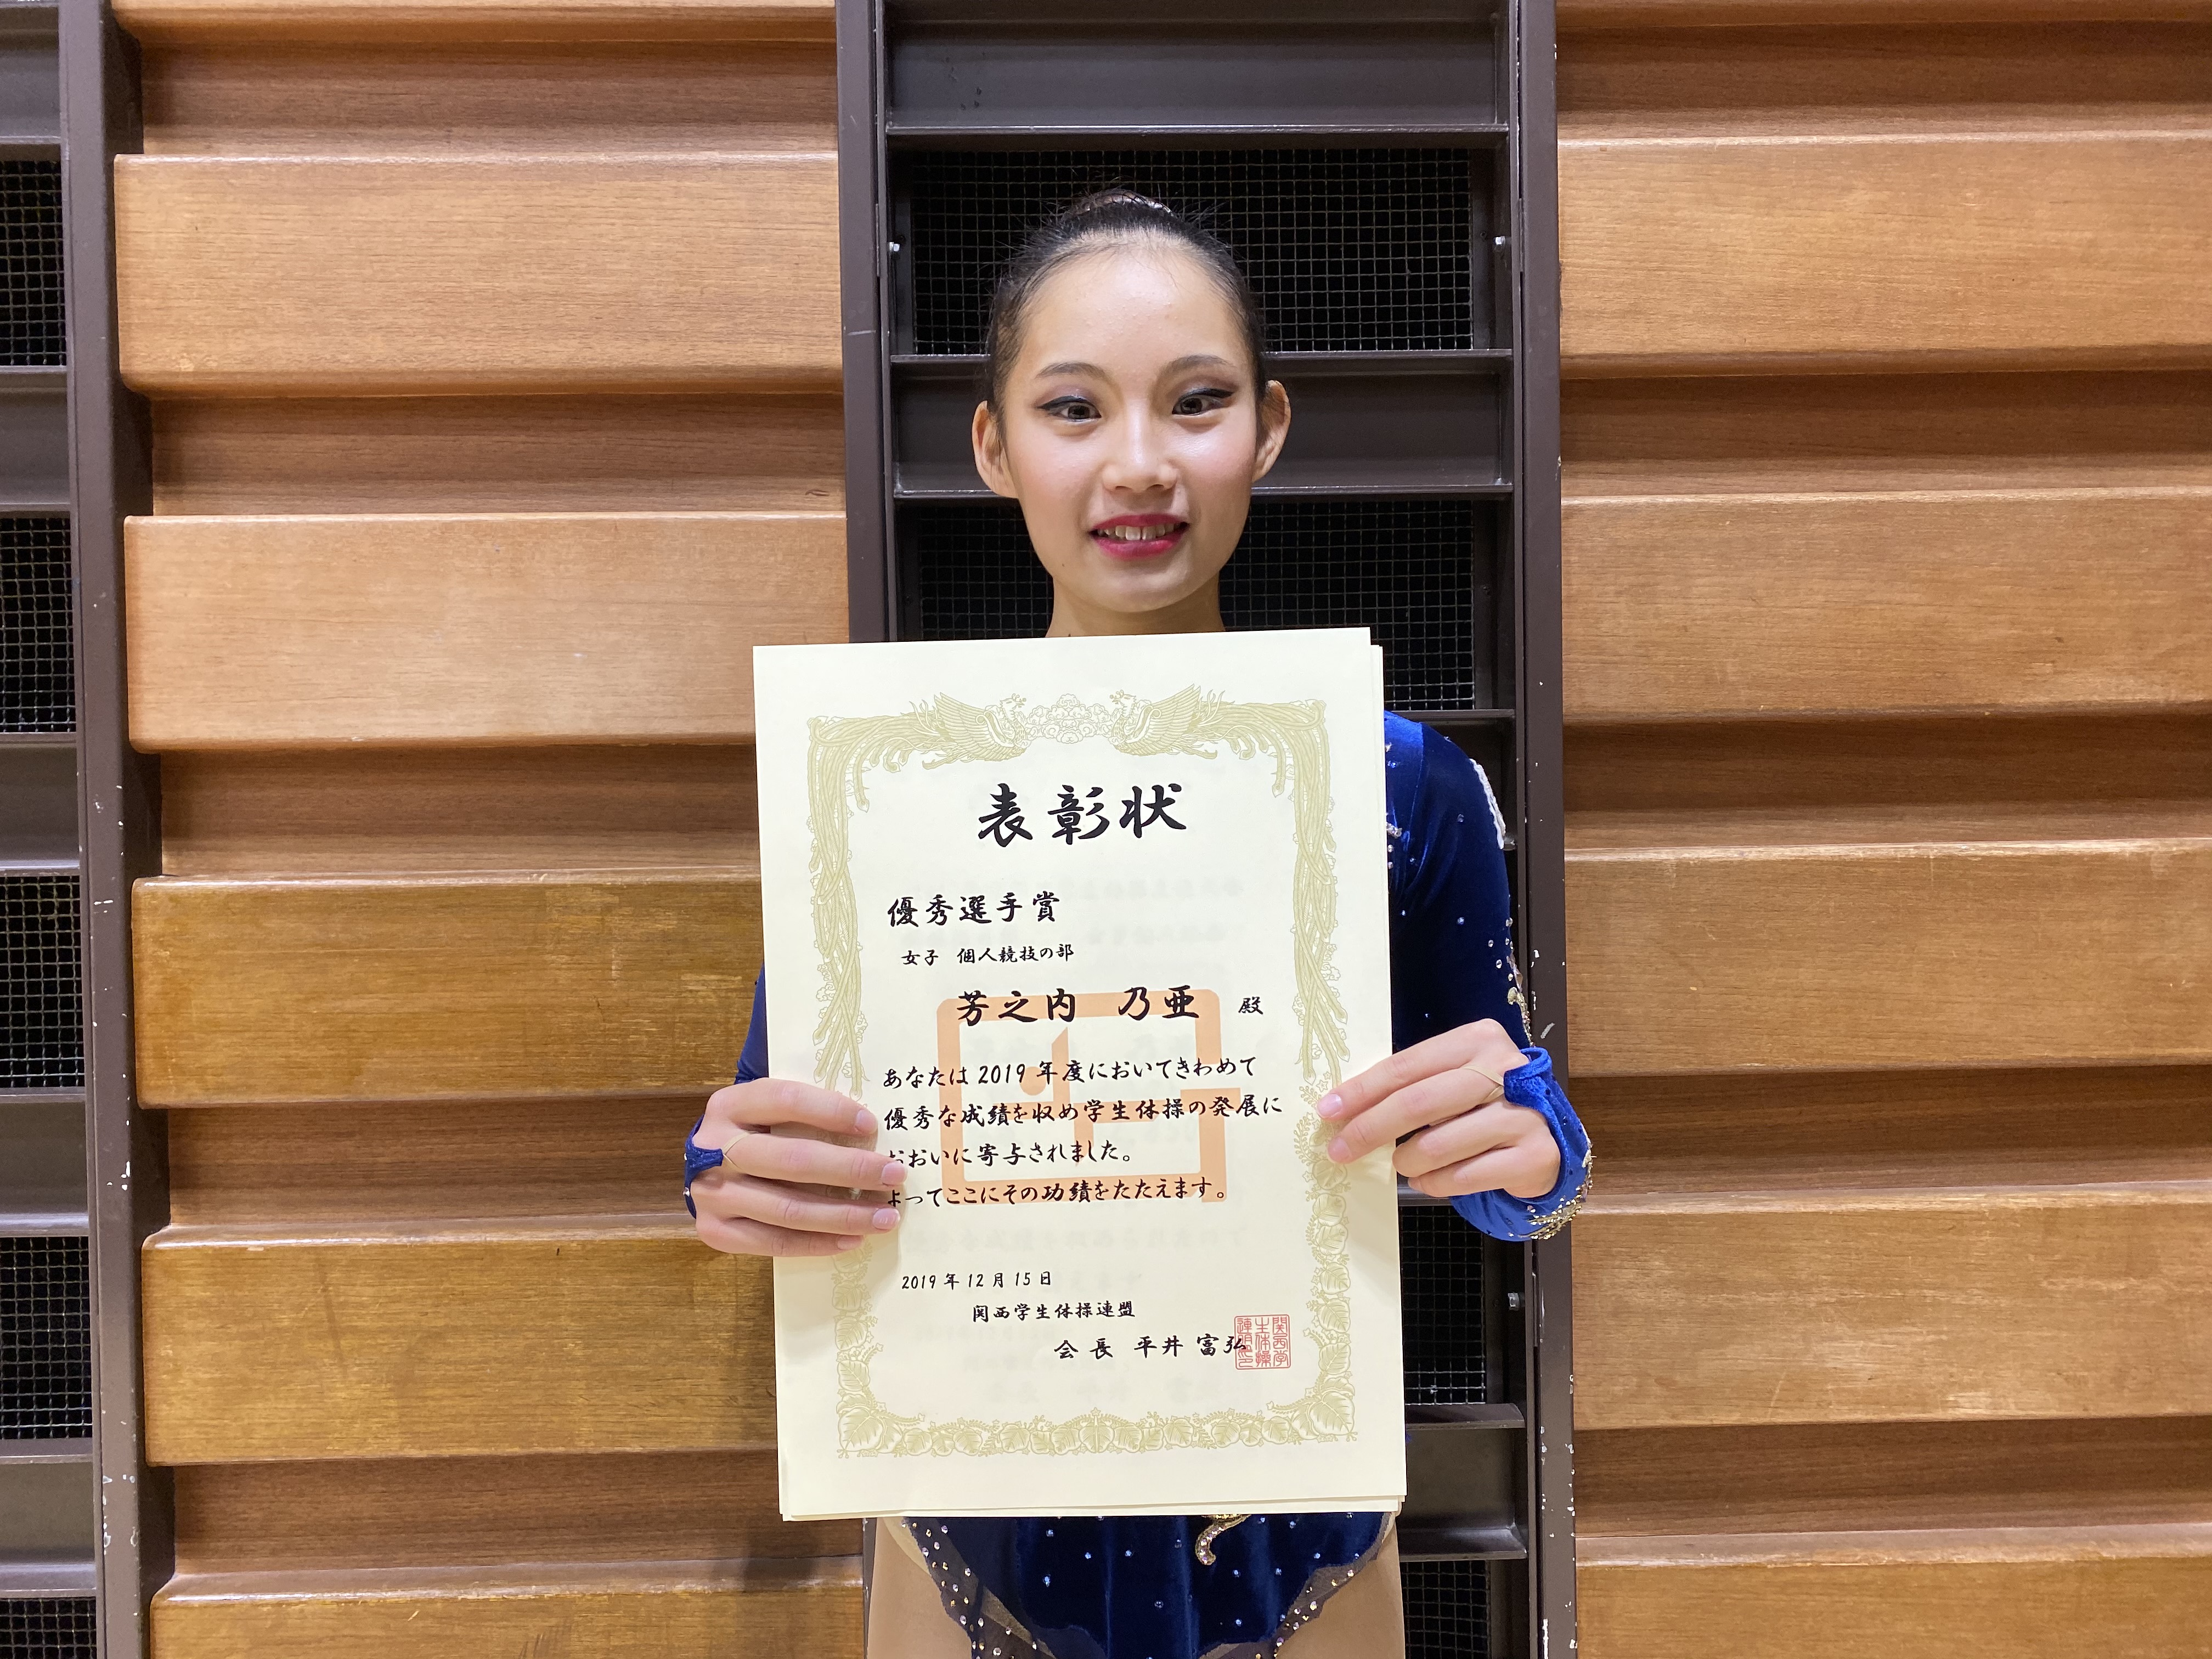 表彰状
優秀選手賞
女子 個人競技の部
芳之内 乃亜 殿
あなたは2019年度においてきわめて
優秀な成績を収め学生体操の発展に
おおいに寄与されました。
よってここにその功績をたたえます。
2019年12月15日
関西学生体操連盟
会長 平井 富弘
関西学
生体操
連盟印